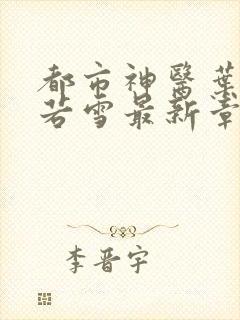 都市神醫葉
若雪最新章
李晋宇